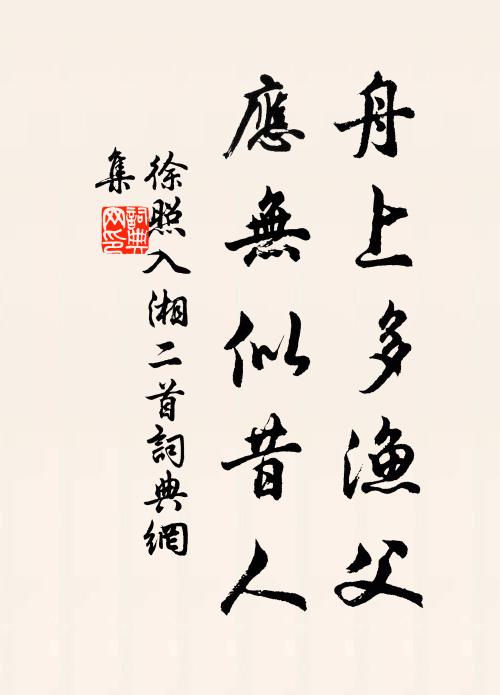 舟上多漁父
應無似昔人
徐照入湘二首詞典網
集
詞典
网印